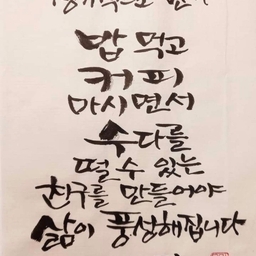 밥 먹고
커피
마시면서
수다를
떨 수 있는
친구를 만들어야
삶이 풍성해집니다